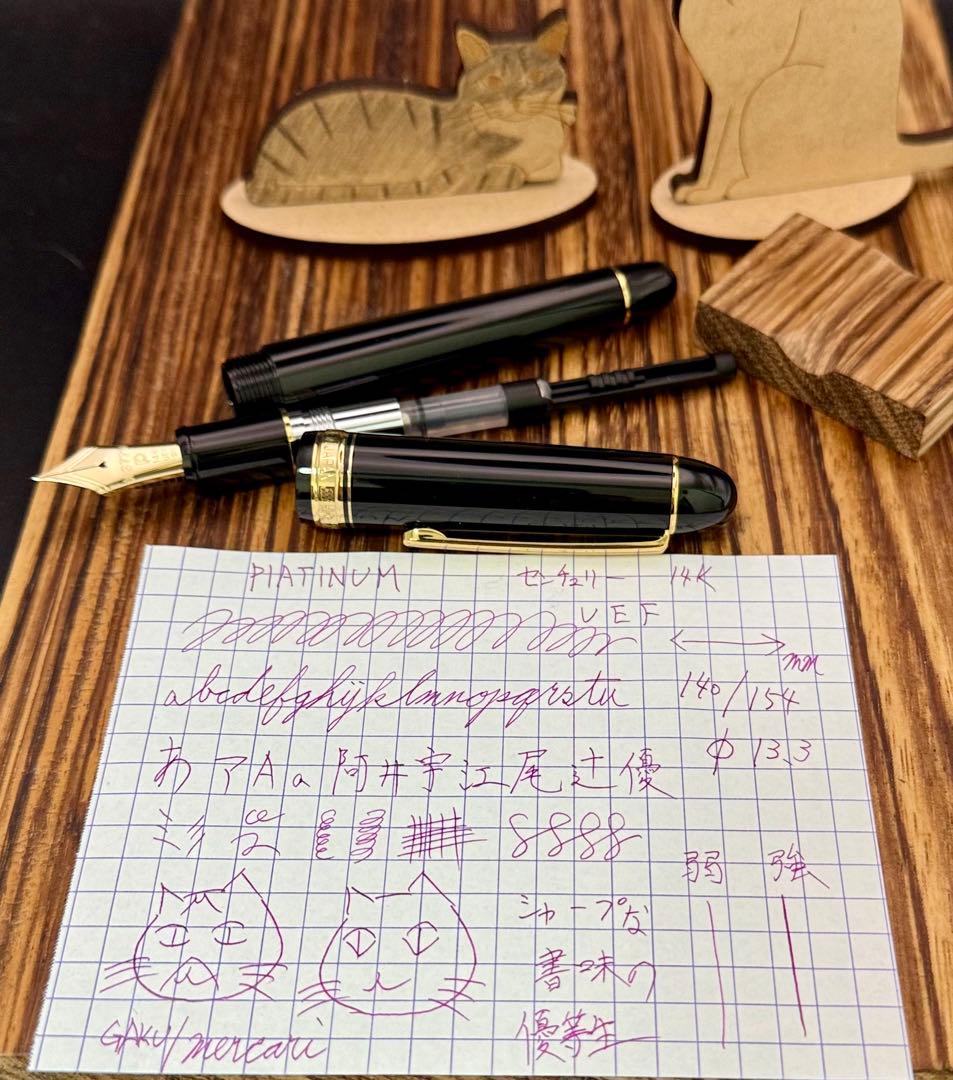 PlATINUM センチュリー 14K
UEF
mm
abcdefghijklmnopqrstu 140/154
あアAa阿井宇江尾辻優 φ 13.3
弱 強
シャープな
書味の
優等生
GAKU/mercari